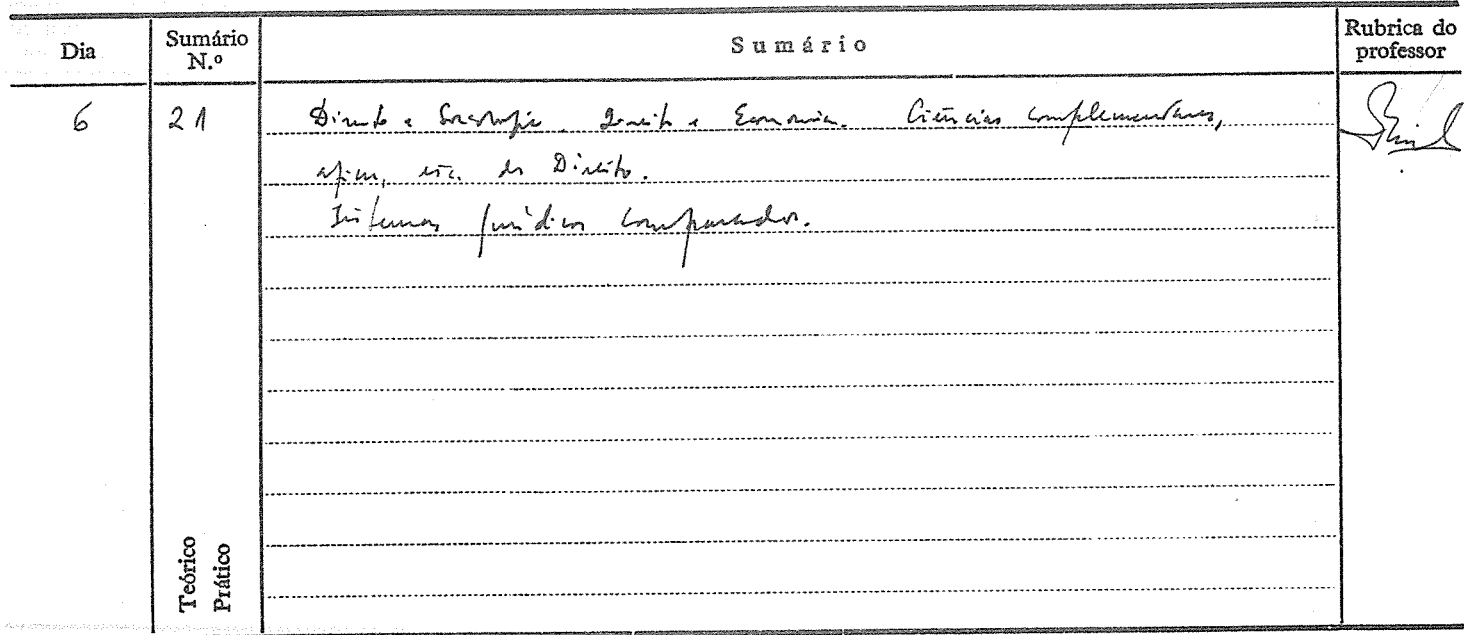 Dia
Sumário N.º
Sumário
Rubrica do professor
6
21
Direito e Sociologia. Direito e Economia. Ciências complementares,
afins, etc. do Direito.
Sistemas jurídicos comparados.
Teórico
Prático